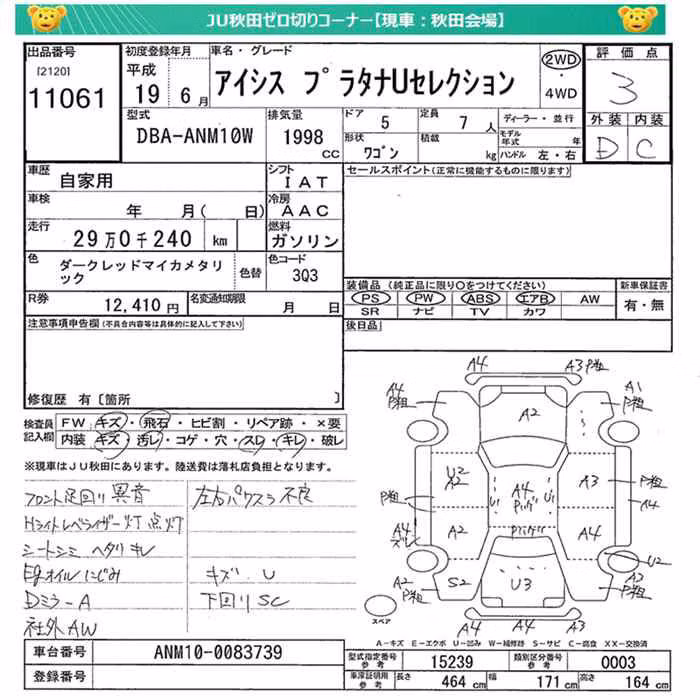 JU秋田ゼロ切りコーナー【現車:秋田会場】
出品番号 [2120] 11061
初度登録年月 平成 19 6月
車名・グレード アイシス プラタナUセレクション
2WD・4WD
評価点 3
外装 D 内装 C
型式 DBA-ANM10W
排気量 1998 cc
ドア 5 定員 7人
形状 ワゴン 積載 kg
ディーラー・並行
モデル年式 年
ハンドル 左・右
車歴 自家用
シフト IAT
車検 年 月( 日)
冷房 AAC
走行 29万0千240 km
燃料 ガソリン
色 ダークレッドマイカメタリック 色替
色コード 3Q3
R券 12,410円
名変通知期限 月 日
セールスポイント(正常に機能するものに限ります)
装備品(純正品に限り○をつけてください)
PS PW ABS エアB AW
SR ナビ TV カワ
新車保証書 有・無
後日品
注意事項申告欄(不具合内容等は具体的に記入して下さい)
修復歴 有〔箇所 〕
検査員記入欄
FW キズ・飛石・ヒビ割・リペア跡・×要
内装 キズ・汚レ・コゲ・穴・スレ・キレ・破レ
※現車はJU秋田にあります。陸送費は落札店負担となります。
フロント足回り異音
左右パワスラ不良
Hライトレベライザー灯点灯
シートシミ ヘタリ キレ
Egオイルにじみ
キズ. U
Dミラ-A
下回り SC
社外AW
A4 A3 P粗
A4 P粗 A2 A1 P粗
U2 A2 A4 Pリング U1 U1 A3 P粗 A4
P粗 A4 ズレ A2 Pリング U2
A2 P粗 S2 U3 A3 P粗
A4 A4 A4
スペア
A-キズ E-エクボ U-凹み W-補修跡 S-サビ C-腐食 XX-交換済
車台番号 ANM10-0083739
登録番号
型式指定番号 参考 15239
類別区分番号 参考 0003
車庫証明用 参考 長さ 464 cm 幅 171 cm 高さ 164 cm